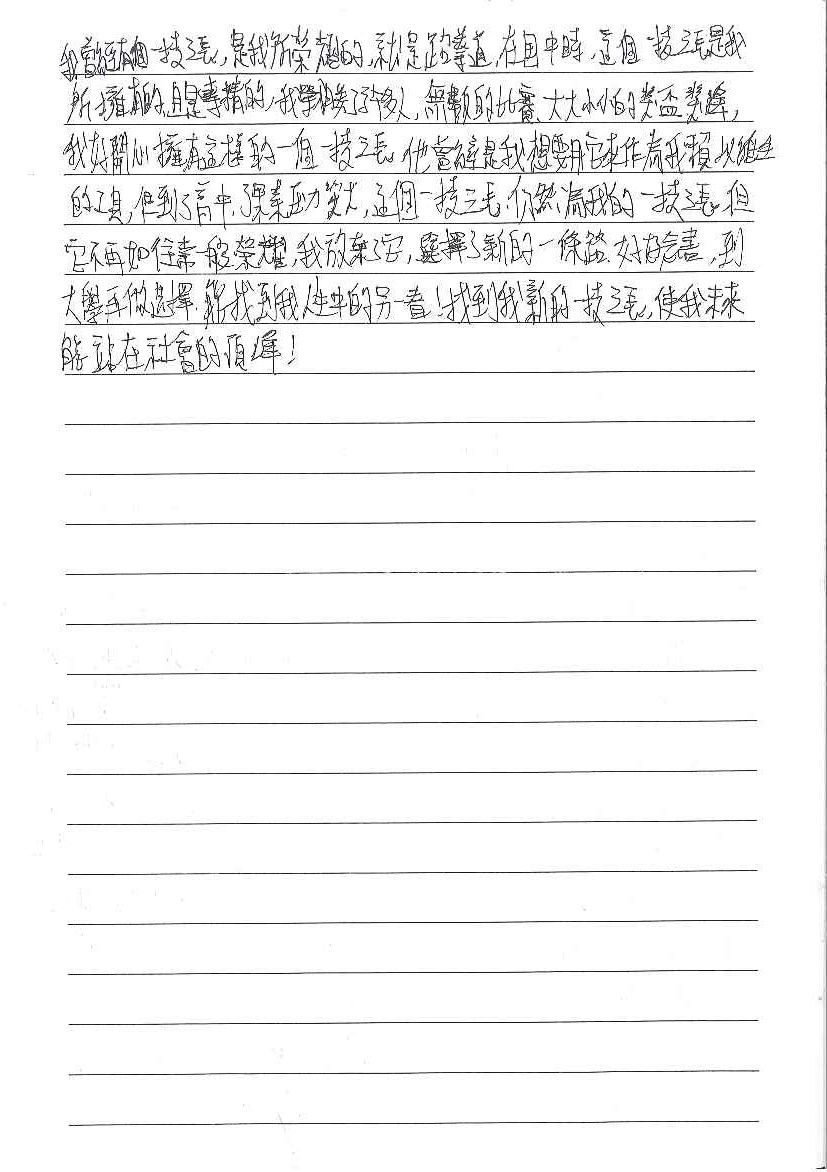 我曾經有個一技之長,是我所榮耀的,就是跆拳道,在国中時,這個一技之長是我
所擁有的,且是專精的,我學贏了許多人,無數的比賽、大大小小的獎盃獎牌,
我好開心擁有這樣的一個一技之長。他曾經是我想要用它來作為我賴以維生
的工具,但到了高中,課業壓力變大,這個一技之長,仍然為我的一技之長。但
它不再如往常一般榮耀,我放棄了它,選擇了新的一條路,好好念書,到
大學再做選擇,能找到我人生中的另一春!找到我新的一技之長,使我未來
能站在社會的頂峰!